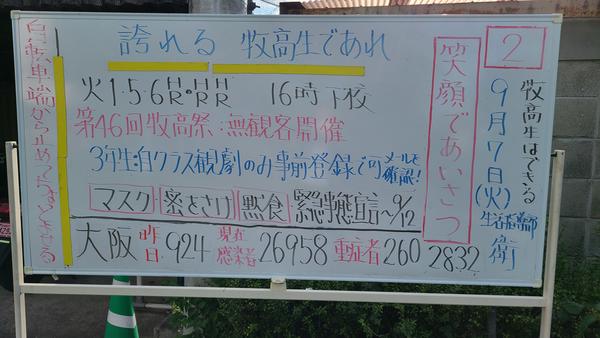 2
牧高生はできる
9月7日(火)
笑顔であいさつ
誇れる 牧高生であれ
火1·5·6HR·HR 16時下校
第46回牧高祭:無観客開催
3年生:自クラス観劇のみ事前登録で可 メールを確認!
マスク 密をさけ 黙食 緊急事態宣言~9/12
大阪 昨日 924 現在感染者 26958 重症者 260 2832
自転車端から止めてちゃんとさせる